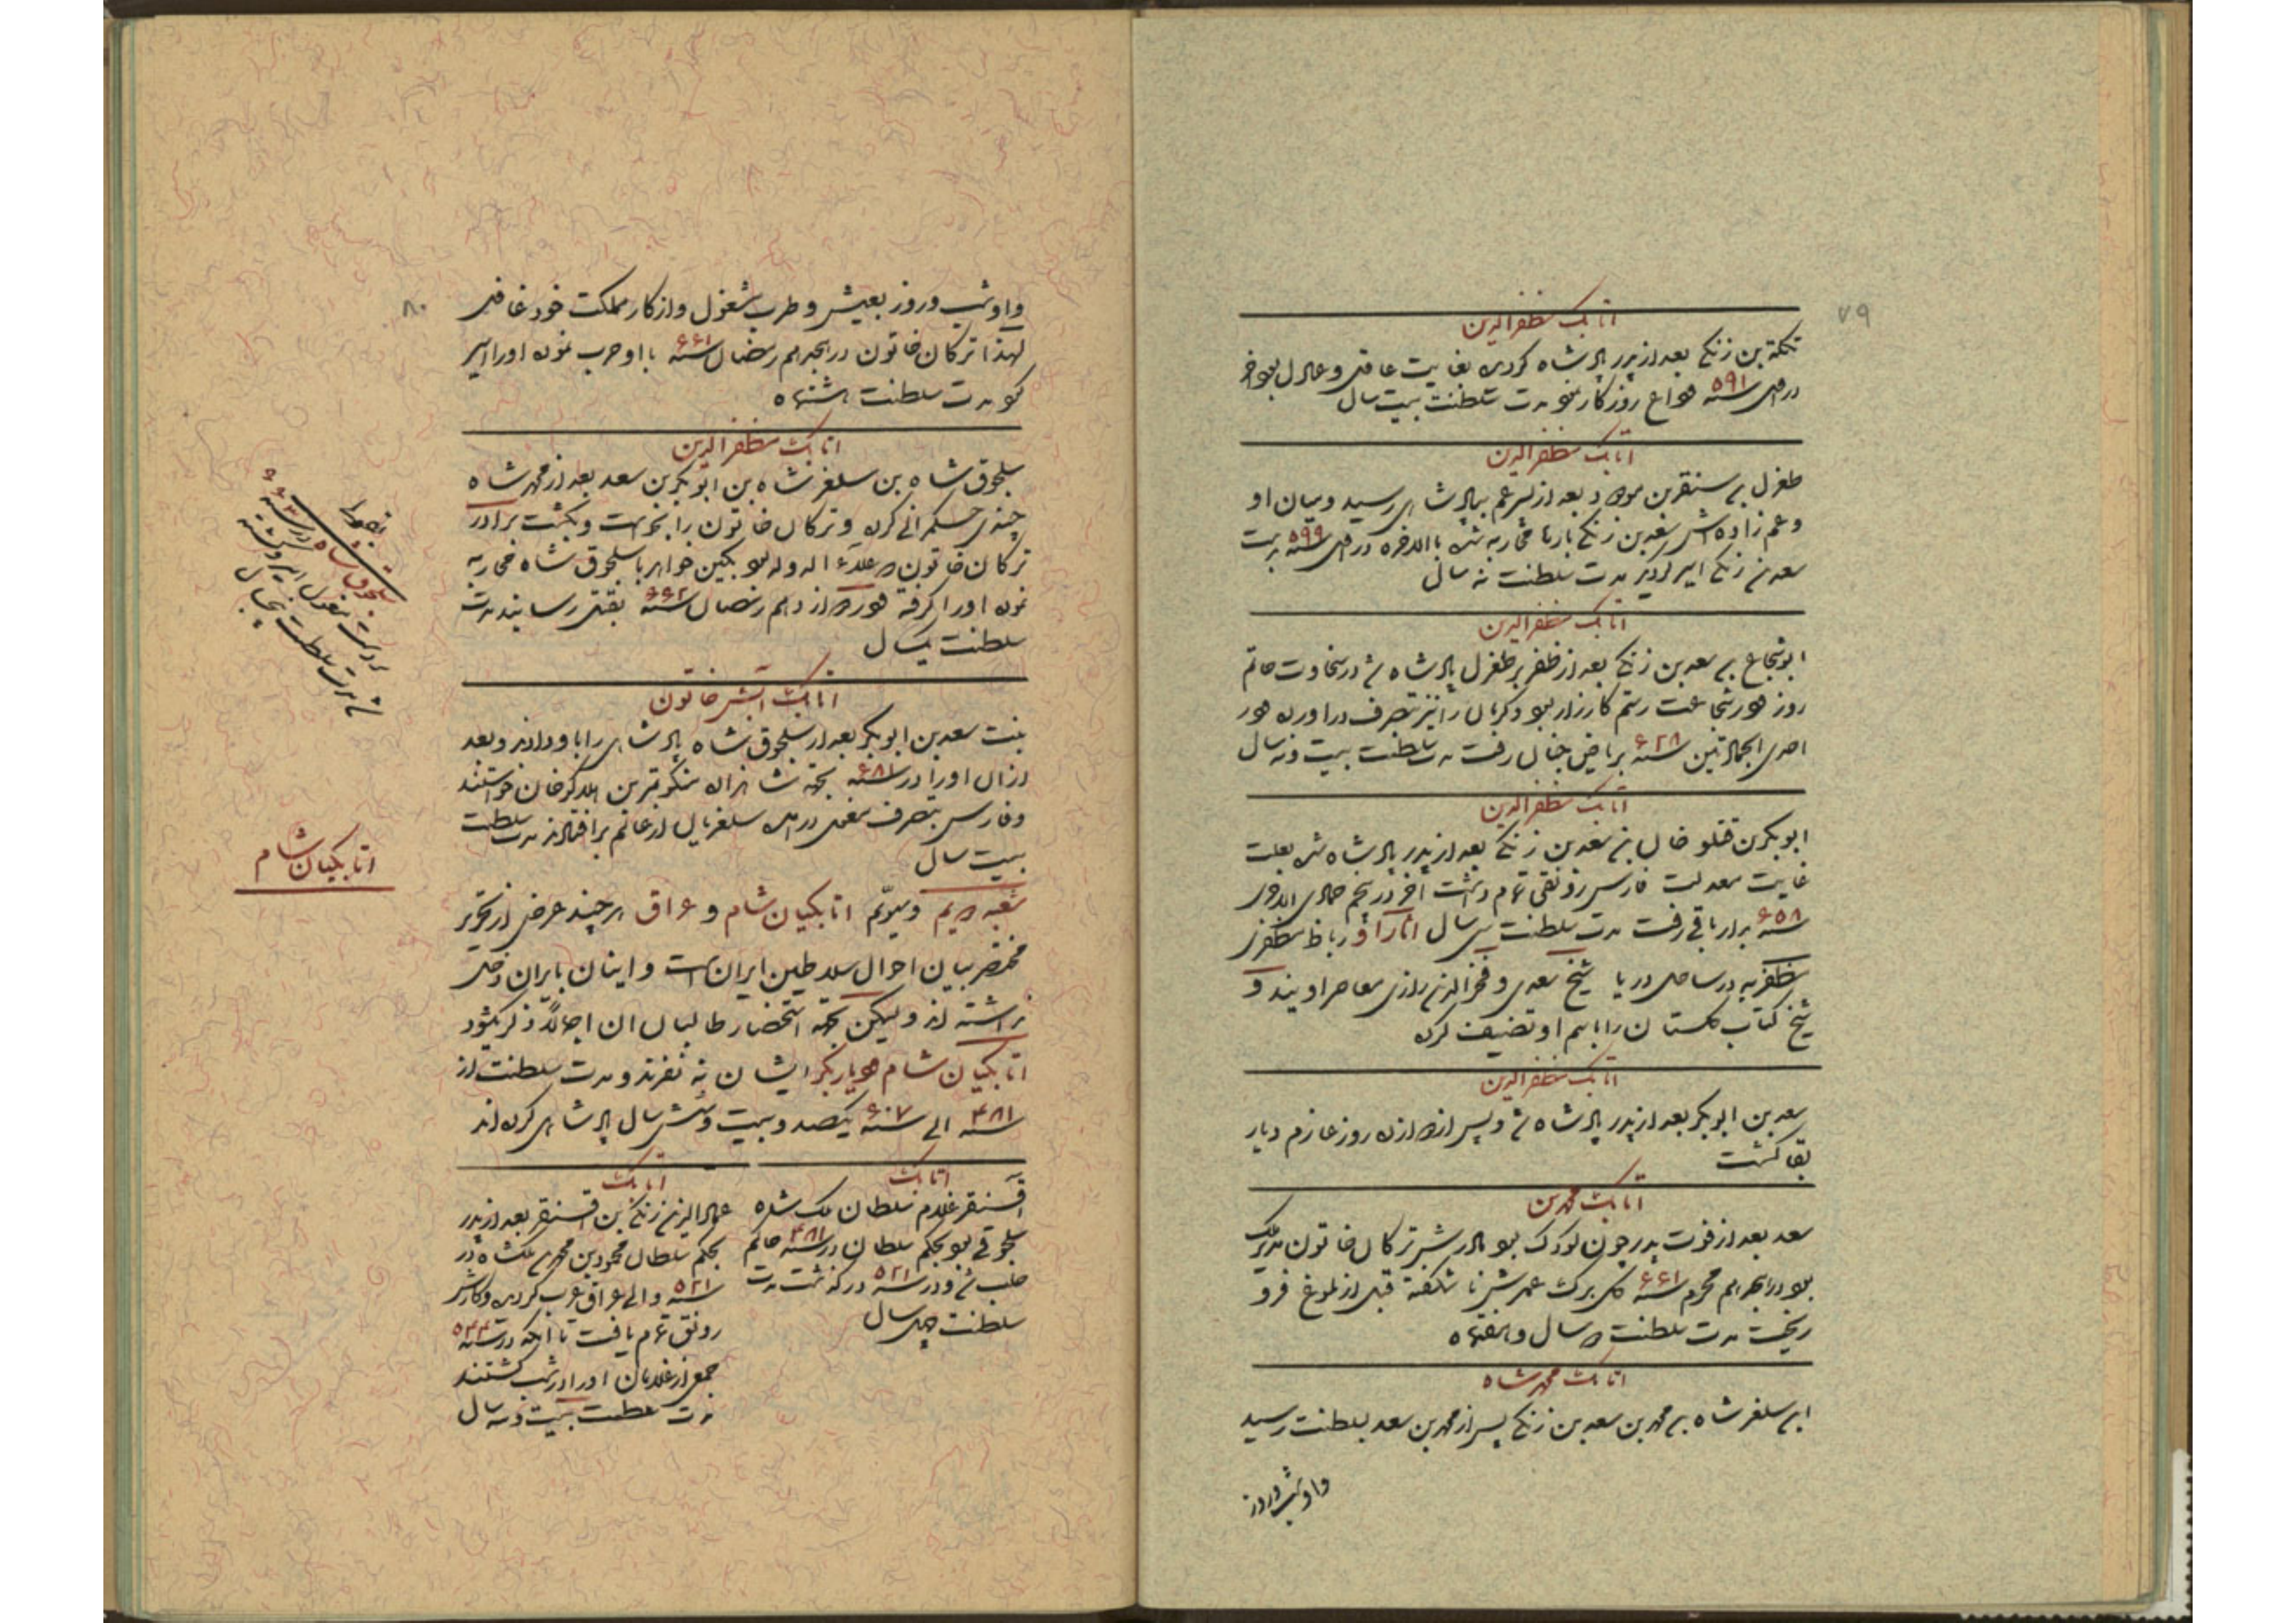 ۷۹
اتابک مظفرالدین
تکله بن زنگی بعد از پدر پادشاه گردید بغایت عاقل و عادل بود آخر
در سنه ۵۹۱ وداع روزگار نمود مدت سلطنت بیست سال
اتابک مظفرالدین
طغرل بن سنقر بن مودود بعد از پسر عم بپادشاهی رسید و میان او
و عم زاده‌اش سعد بن زنگی بارها محاربه شده بالاخره در سنه ۵۹۹ بدست
سعد بن زنگی اسیر گردید مدت سلطنت نه سال
اتابک مظفرالدین
ابوشجاع بن سعد بن زنگی بعد از ظفر بر طغرل پادشاه شد در سخاوت حاتم
روز و در شجاعت رستم کارزار بود و کرمان را نیز بتصرف در اورده و در
احدی الجمادتین سنه ۶۲۸ بریاض جنان رفت مدت سلطنت بیست و نه سال
اتابک مظفرالدین
ابوبکر بن قتلوخان بن سعد بن زنگی بعد از پدر پادشاه شد بعلت
غایت معدلت فارس رونقی تمام داشت آخر در پنجم جمادی الاخری
سنه ۶۵۸ بدار باقی رفت مدت سلطنت سی سال آثار او رباط مظفری
مظفریه در ساحل دریا شیخ سعدی و فخرالدین رازی معاصر اویند و
شیخ کتاب گلستان را باسم او تصنیف کرده
اتابک مظفرالدین
سعد بن ابوبکر بعد از پدر پادشاه شد و پس از دوازده روز عازم دیار
بقا گشت
اتابک محمد بن
سعد بعد از فوت پدر چون کودک بود مادرش ترکان خاتون مدبر ملک
بود در ذیحجه‌ام محرم سنه ۶۶۱ گل برگ عمرش نا شکفته قبل از بلوغ فرو
ریخت مدت سلطنت دو سال و هفتماه
اتابک محمد شاه
ابن سلغر شاه بن محمد بن سعد بن زنگی پس از محمد بن سعد بسلطنت رسید
و او شب و روز
۸۰
و او شب و روز بعیش و طرب مشغول و از کار مملکت خود غافل
لهذا ترکان خاتون در رمضان سنه ۶۶۱ با او حرب نموده او را اسیر
نمود مدت سلطنت هشتماه
اتابک مظفرالدین
سلجوق شاه بن سلغر شاه بن ابوبکر بن سعد بعد از محمد شاه
چندی حکمرانی کرده و ترکان خاتون را بخواست و بکشت برادر
ترکان خاتون علاء الدوله بود بکین خواهر با سلجوق شاه محاربه
نموده او را گرفته دوازدهم رمضان سنه ۶۶۲ بقتل رسانید مدت
سلطنت یک سال
اتابک آبش خاتون
بنت سعد بن ابوبکر بعد از سلجوق شاه پادشاهی را باو دادند و بعد
از آن او را در سنه ۶۸۱ بجهة شاهزاده منکو تیمر بن هلاکوخان خواستند
و فارس بتصرف مغول در امد سلغریان از عالم بر افتادند مدت سلطنت
بیست سال
شعبه دویم و سیوّم اتابکیان شام و عراق هر چند غرض از تحریر
مختصر بیان احوال سلاطین ایران است و اینان بایران دخلی
نداشته اند ولیکن بجهة استحضار طالبان ان اجمالاً ذکر میشود
اتابکیان شام و دیاربکر ایشان نه نفرند و مدت سلطنت از
سنه ۴۸۱ الی سنه ۶۰۷ یکصد و بیست و شش سال پادشاهی کرده اند
اتابک
آقسنقر غلام سلطان ملک شاه
سلجوقی بود بحکم سلطان در سنه ۴۸۱ حاکم
حلب شد و در سنه ۵۲۱ در گذشت مدت
سلطنت چهل سال
اتابک
عمادالدین زنگی بن اقسنقر بعد از پدر
بحکم سلطان محمود بن محمد بن ملکشاه در
سنه ۵۲۱ والی عراق عرب گردید و کارش
رونق تمام یافت تا آنکه در سنه ۵۴۴
جمعی از غلامان او را در شب کشتند
مدت سلطنت بیست و سه سال
سلجوق شاه در سنه
مدت سلطنت پنج سال
اتابکیان شام